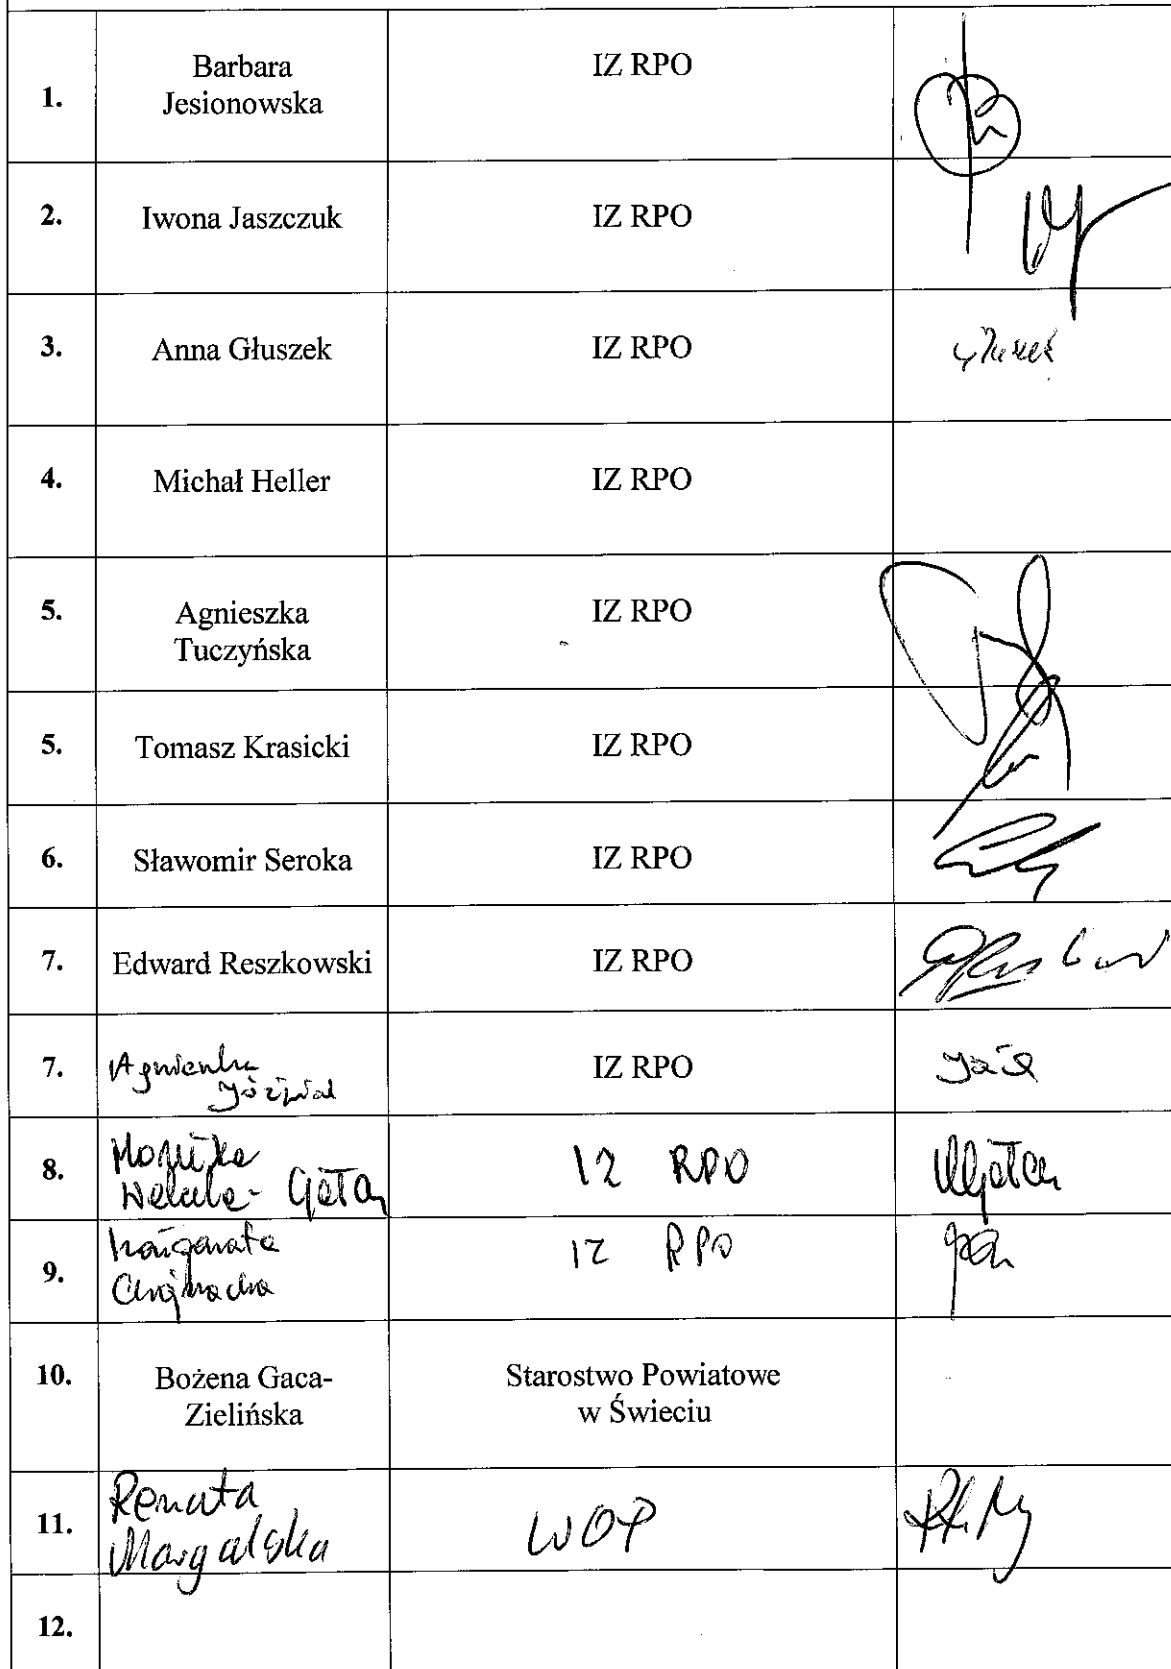 1.
Barbara
Jesionowska
IZ RPO
2.
Iwona Jaszczuk
IZ RPO
3.
Anna Głuszek
IZ RPO
4.
Michał Heller
IZ RPO
5.
Agnieszka
Tuczyńska
IZ RPO
5.
Tomasz Krasicki
IZ RPO
6.
Sławomir Seroka
IZ RPO
7.
Edward Reszkowski
IZ RPO
7.
Agnieszka
Jóźwiak
IZ RPO
8.
Monika
IZ RPO
9.
Małgorzata
Chojnacka
IZ RPO
10.
Bożena Gaca-
Zielińska
Starostwo Powiatowe
w Świeciu
11.
Renata
Margalska
WOP
12.